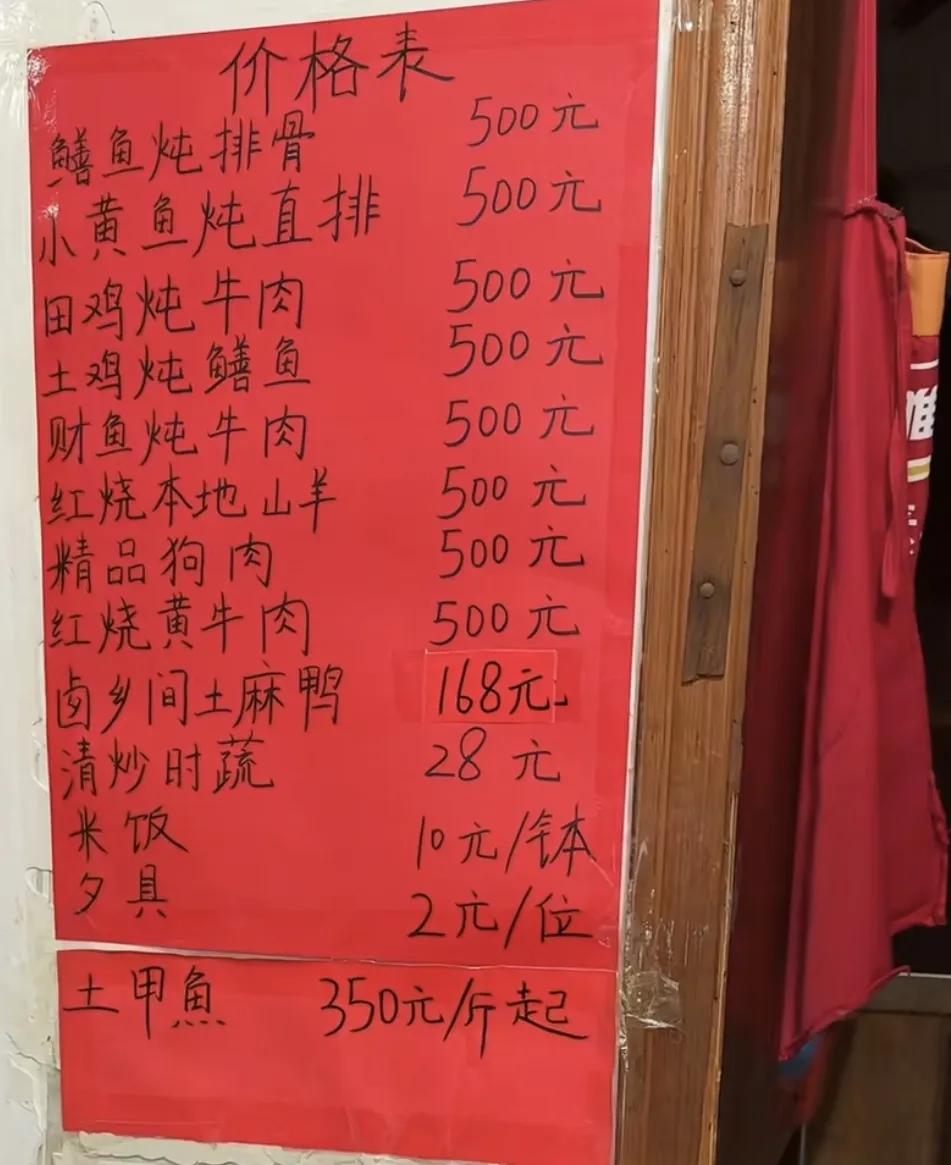 价格表
鳝鱼炖排骨 500元
小黄鱼炖直排 500元
田鸡炖牛肉 500元
土鸡炖鳝鱼 500元
财鱼炖牛肉 500元
红烧本地山羊 500元
精品狗肉 500元
红烧黄牛肉 500元
卤乡间土麻鸭 168元
清炒时蔬 28元
米饭 10元/钵
夕具 2元/位
土甲魚 350元/斤起